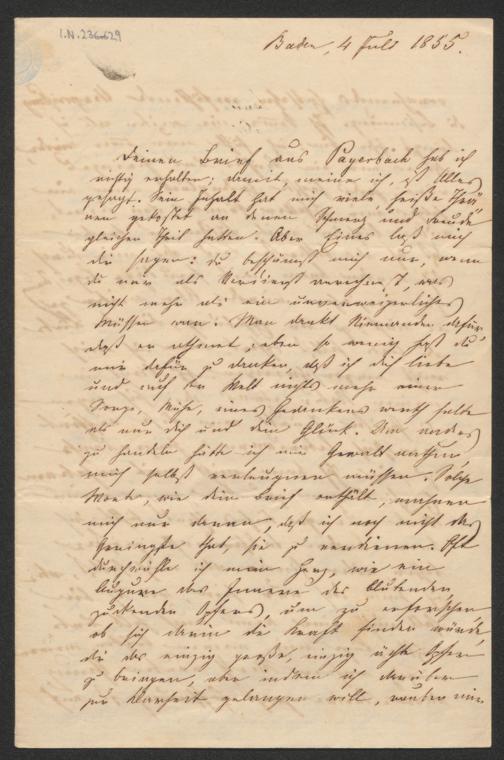 I.N. 236.629
Baden, 4 Juli 1855.
Deinen Brief aus Payerbach hab ich
richtig erhalten; damit, meine ich, ist Alles
gesagt. Sein Inhalt hat mich viele, heiße Thrä
nen gekostet an denen Schmerz und Freude
gleichen Theil hatten. Aber Eines laß mich
dir sagen: du beschämst mich nur, wenn
du mir als Verdienst anrechnest, was
nicht mehr als ein unverweigerliches
Müssen war. Man dankt Niemanden dafür
daß er athmet; eben so wenig hast du
mir dafür zu danken, daß ich dich liebe
und auf der Welt nichts mehr einer
Sorge, Mühe, eines Gedankens werth halte
als nur dich und dein Glück. Um anders
zu handeln hätte ich mir Gewalt anthun
mich selbst verleugnen müssen. Solche
Worte, wie dein Brief enthält, mahnen
mich nur daran, daß ich noch nicht das
Geringste that, sie zu verdienen. Oft
durchwühle ich mein Herz, wie ein
Augure das Innere des blutenden
zuckenden Opfers, um zu erforschen
ob sich darin die Kraft finden würde,
dir das einzig große, einzig ächte Opfer
zu bringen, aber indem ich darüber
zur Klarheit gelangen will, rauben mir